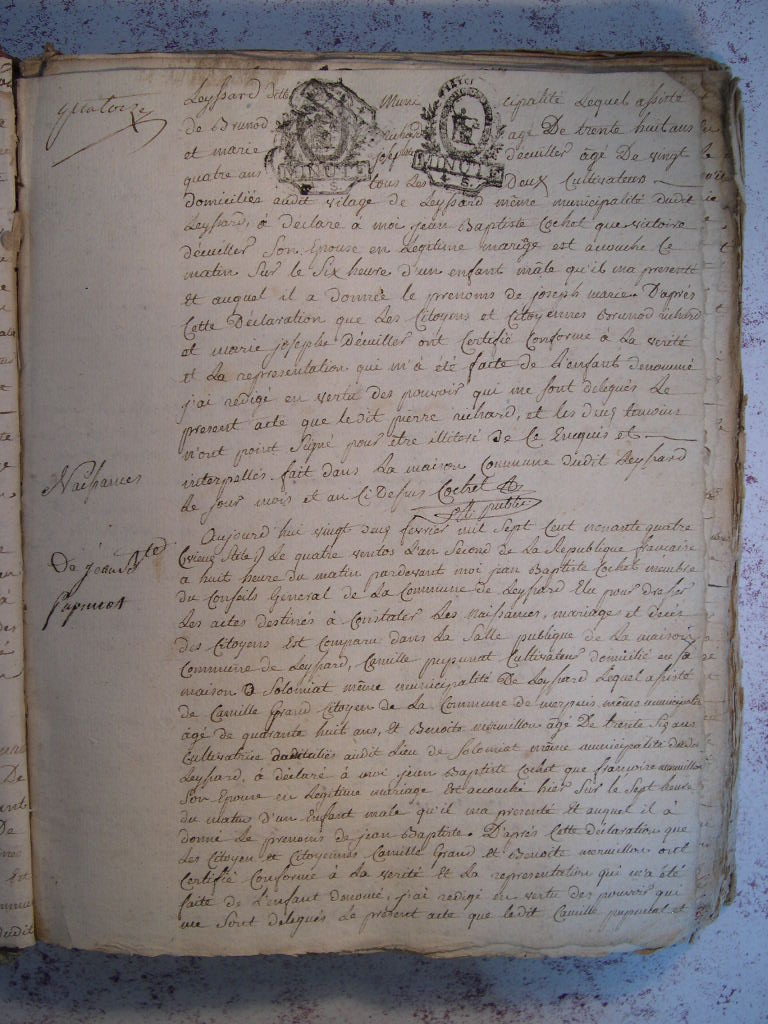 quatorze
Leyssard dite Muni cipalité Lequel assisté
de Brunod Richard agé De trente huit ans
et marie josephte d'écuiller âgé De vingt
quatre ans tous Les Deux Cultivateurs
MINUTE
4 S.
MINUTE
4 S.
domiciliés audit vilage de Leyssard même municipalité dudit
Leyssard, à déclaré à moi jean Baptiste Cochet que victoire
d'écuiller Son Epouse en Légitime mariage est acouché Ce
matin Sur le Six heure d'un enfant mâle qu'il ma presenté
Et auquel il a donnée le prenoms de joseph marie. D'après
Cette Déclaration que Les Citoyens et Citoyennes Brunod richard
et marie josephe D'écuiller ont Certifié Conforme à La verité
et La representation qui m'a été faite de L'enfant denommé
j'ai redigé en vertu des pouvoir qui me sont delegués Le
present acte que le dit pierre richard, et les deux temoins
n'ont point Signé pour etre illitoré de Ce Enequis et
interpallés fait dans La maison Commune dudit Leyssard
Le jour mois et an Ci Desus Cochet
off. public
Naissances
De jean Bte
pupunat
Aujourd hui vingt deux fevrier mil Sept Cent nonante quatre
(vieux Stile) Le quatre ventos L'an Second de La Republique francaise
a huit heure du matin pardevant moi jean Baptiste Cochet membre
du Conseils General de La Commune de Leyssard Elu pour Dresser
Les actes destinés à Constater Les Naissances, mariage et Décés
des Citoyens Est Comparu dans La Salle publique de La maison
Commune de Leyssard, Camille pupunat Cultivateur domicilié en sa
maison à Solomiat même municipalité De Leyssard Lequel assisté
de Camille Grand Citoyen de La Commune de même municipalité
âgé de quarante huit ans, et Benoite mermillon âgé De trente Six ans
Cultivatrice domiciliés audit Lieu de Solomiat même municipalité dudit
Leyssard, à déclaré à moi jean Baptiste Cochet que francoise mermillon
Son Epouse en Légitime mariage Et accouché hier Sur le Sept heure
du matin d'un Enfant male qu'il ma presenté et auquel il à
donné Le prenoms de jean Baptiste. D'après Cette déclaration que
Les Citoyen et Citoyennes Camille Grand et Benoite mermillon ont
Certifié Conforme à La verité et La representation qui m'a été
faite de L'enfant denomé, j'ai redigé en vertu des pouvoir qui
me Sont delegués Le présent acte que ledit Camille pupunat et